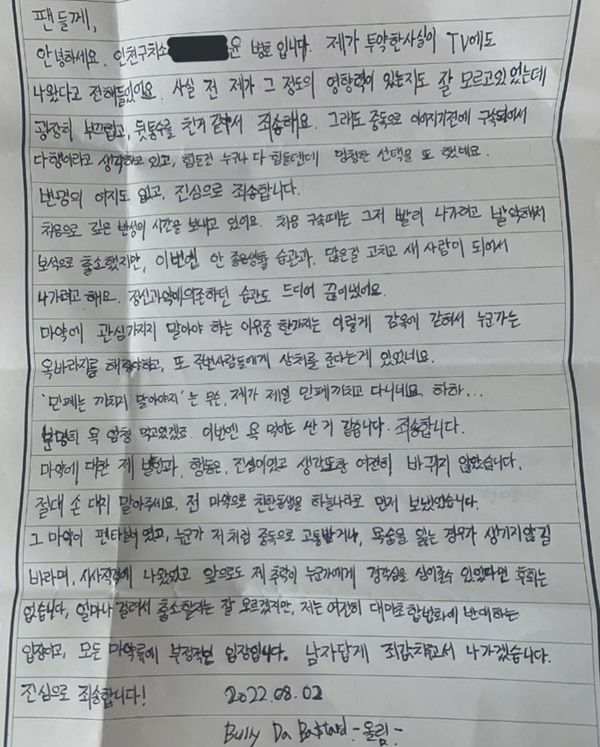 팬들께,
안녕하세요. 인천구치소 윤 병호 입니다. 제가 투약한사실이 TV에도
나왔다고 전해들었어요. 사실 전 제가 그 정도의 영향력이 있는지도 잘 모르고있었는데
굉장히 부끄럽고, 뒷통수를 친거 같아서 죄송해요. 그래도 중독으로 이어지기전에 구속되어서
다행이라고 생각하고 있고, 힘든건 누구나 다 힘들텐데 멍청한 선택을 또 했네요.
변명의 여지도 없고, 진심으로 죄송합니다.
처음으로 깊은 반성의 시간을 보내고 있어요. 처음 구속때는 그저 빨리 나가려고 발악해서
보석으로 출소했지만, 이번엔 안 좋은생활 습관과, 많은걸 고치고 새 사람이 되어서
나가려고 해요. 정신과약에의존하던 습관도 드디어 끊어냈어요.
마약에 관심가지지 말아야 하는 이유중 한가지는 이렇게 감옥에 갇혀서 누군가는
옥바라지를 해줘야하고, 또 주변사람들에게 상처를 준다는게 있었네요.
'민폐는 끼치지 말아야지'는 무슨, 제가 제일 민폐끼치고 다니네요. 하하...
분명히 욕 엄청 먹고있겠죠. 이번엔 욕 먹어도 싼 거 같습니다. 죄송합니다.
마약에 대한 제 발언과 행동은, 진실이었고 생각또한 여전히 바뀌지 않았습니다.
절대 손 대지 말아주세요. 전 마약으로 친한동생을 하늘나라로 먼저 보냈었습니다.
그 마약이 펜타닐이었고, 누군가 저 처럼 중독으로 고통받거나, 목숨을 잃는 경우가 생기지않길
바라며, 시사직격에 나왔었고 앞으로도 제 추락이 누군가에게 경각심을 심어줄수 있었다면 후회는
없습니다. 얼마나 걸려서 출소할지는 잘 모르겠지만, 저는 여전히 대마초합법화에 반대하는
입장이고, 모든 마약류에 부정적인 입장입니다. 남자답게 죄값치르고서 나가겠습니다.
진심으로 죄송합니다! 2022.08.02
Bully Da Ba$tard -올림-